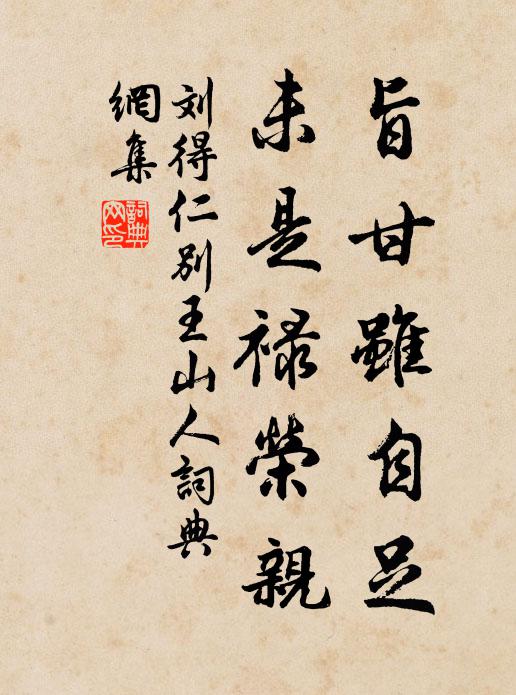 旨甘雖自足
未是禄榮親
刘得仁別王山人詞典
網集
詞典
网印